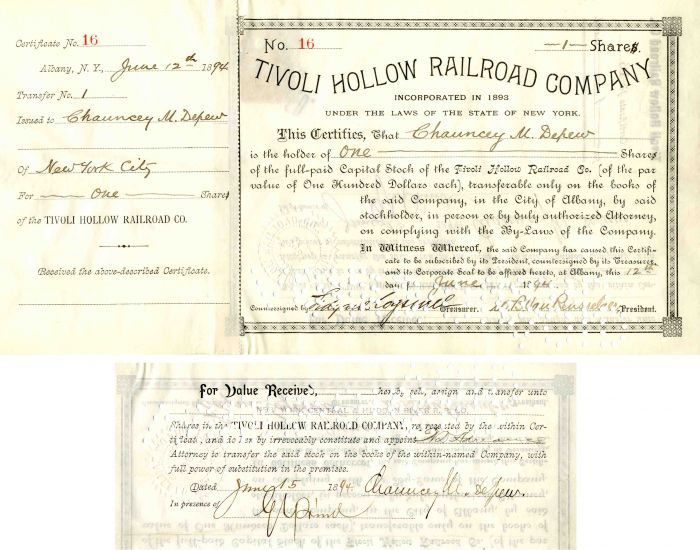 Certificate No. 16
Albany, N. Y., June 12th 1894
Transfer No. 1
Issued to Chauncey M. Depew
Of New York City
For One Share
of the TIVOLI HOLLOW RAILROAD CO.
Received the above-described Certificate.
No. 16
—1— Shares.
TIVOLI HOLLOW RAILROAD COMPANY
INCORPORATED IN 1893
UNDER THE LAWS OF THE STATE OF NEW YORK.
This Certifies, That Chauncey M. Depew
is the holder of One Shares
of the full-paid Capital Stock of the Tivoli Hollow Railroad Co. (of the par
value of One Hundred Dollars each), transferable only on the books of
the said Company, in the City of Albany, by said
stockholder, in person or by duly authorized Attorney,
on complying with the By-Laws of the Company.
In Witness Whereof, the said Company has caused this Certifi-
cate to be subscribed by its President, countersigned by its Treasurer,
and its Corporate Seal to be affixed hereto, at Albany, this 12th
day of June 1894.
Countersigned by Treasurer. President.
For Value Received, hereby sell, assign and transfer unto
NEW YORK CENTRAL & HUDSON RIVER R. R. CO.
Shares in the TIVOLI HOLLOW RAILROAD COMPANY, represented by the within Cer-
tificate, and do hereby irrevocably constitute and appoint
Attorney to transfer the said stock on the books of the within-named Company, with
full power of substitution in the premises.
Dated June 15 1894 Chauncey M. Depew.
In presence of